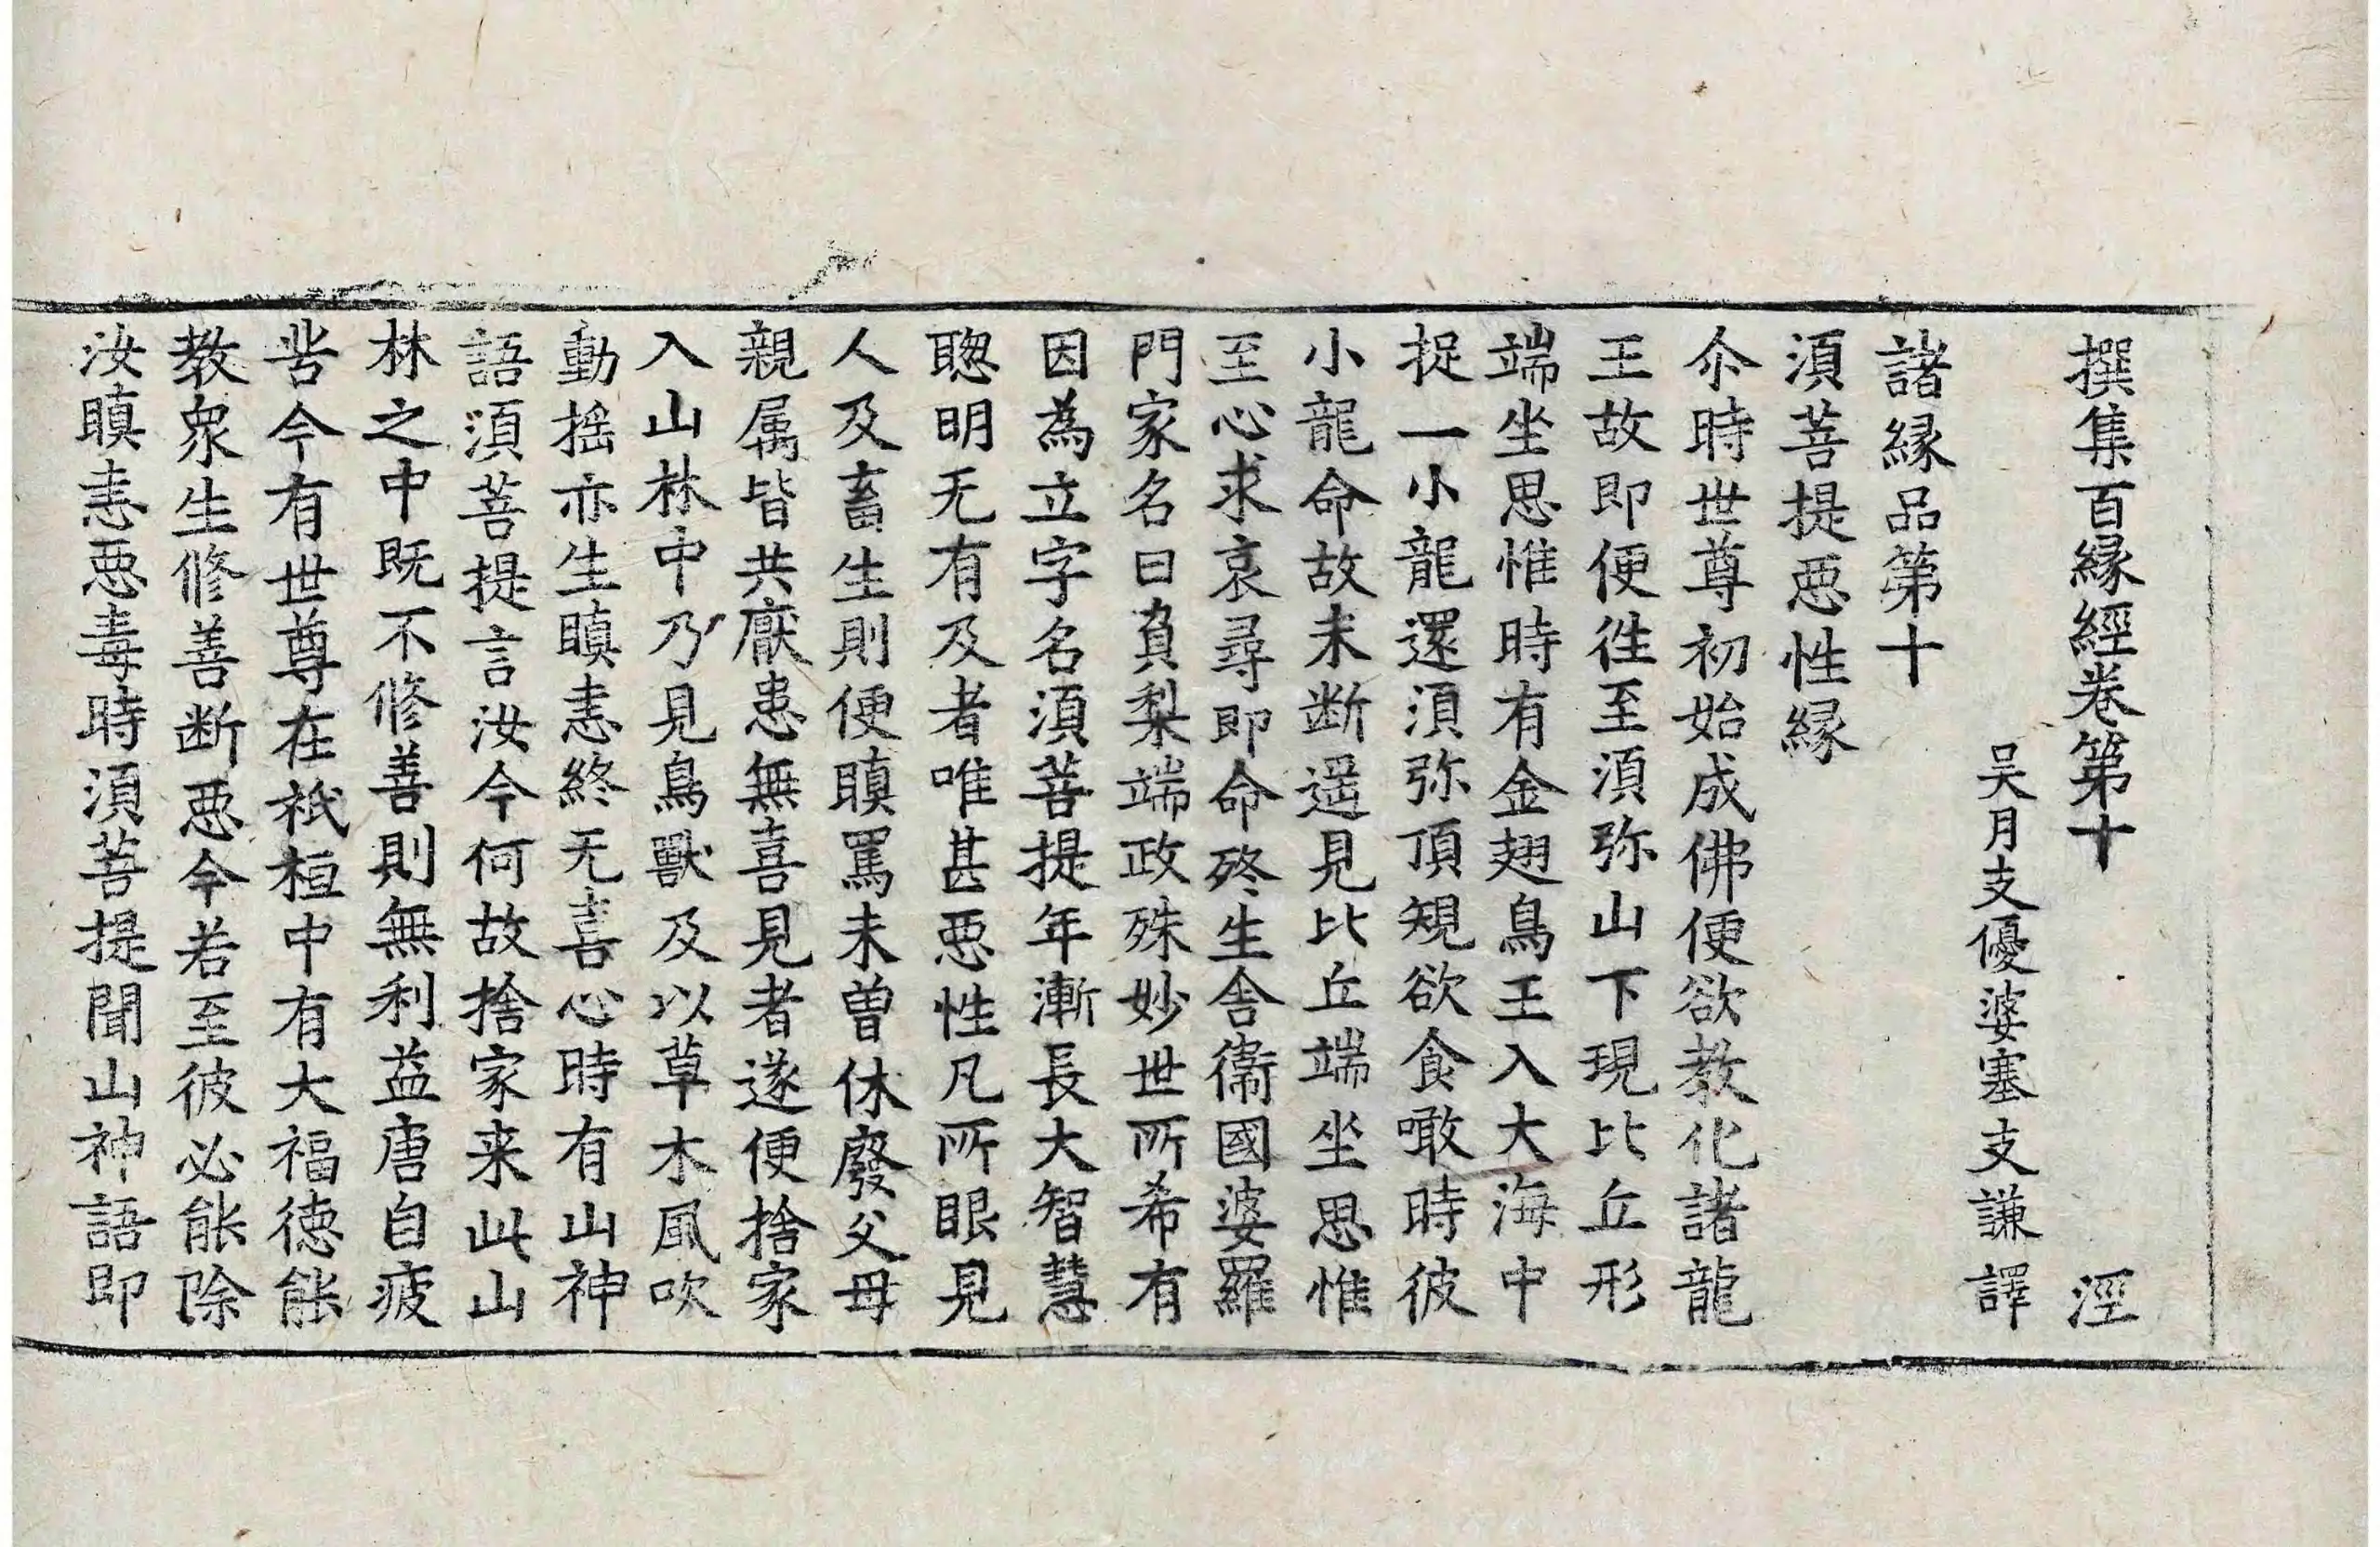 撰集百縁經卷第十 淫
吴月支優婆塞支謙譯
諸縁品第十
湏菩提惡性縁
尒時世尊初始成佛便欲教化諸龍
王故即便徃至湏弥山下現比丘形
端坐思惟時有金翅鳥王入大海中
捉一小龍還湏弥頂規欲食噉時彼
小龍命故未断遥見比丘端坐思惟
至心求哀尋即命終生舎衞國婆羅
門家名曰負梨端政殊妙世所希有
因為立字名湏菩提年漸長大智慧
聦明无有及者唯甚惡性凡所眼見
人及畜生則便瞋罵未曽休廢父母
親属皆共猒患無喜見者遂便捨家
入山林中乃見鳥獸及以草木風吹
動揺亦生瞋恚終无喜心時有山神
語湏菩提言汝今何故捨家来此山
林之中既不修善則無利益唐自疲
苦今有世尊在祇桓中有大福徳能
教衆生修善断惡今若至彼必能除
汝瞋恚惡毒時湏菩提聞山神語即